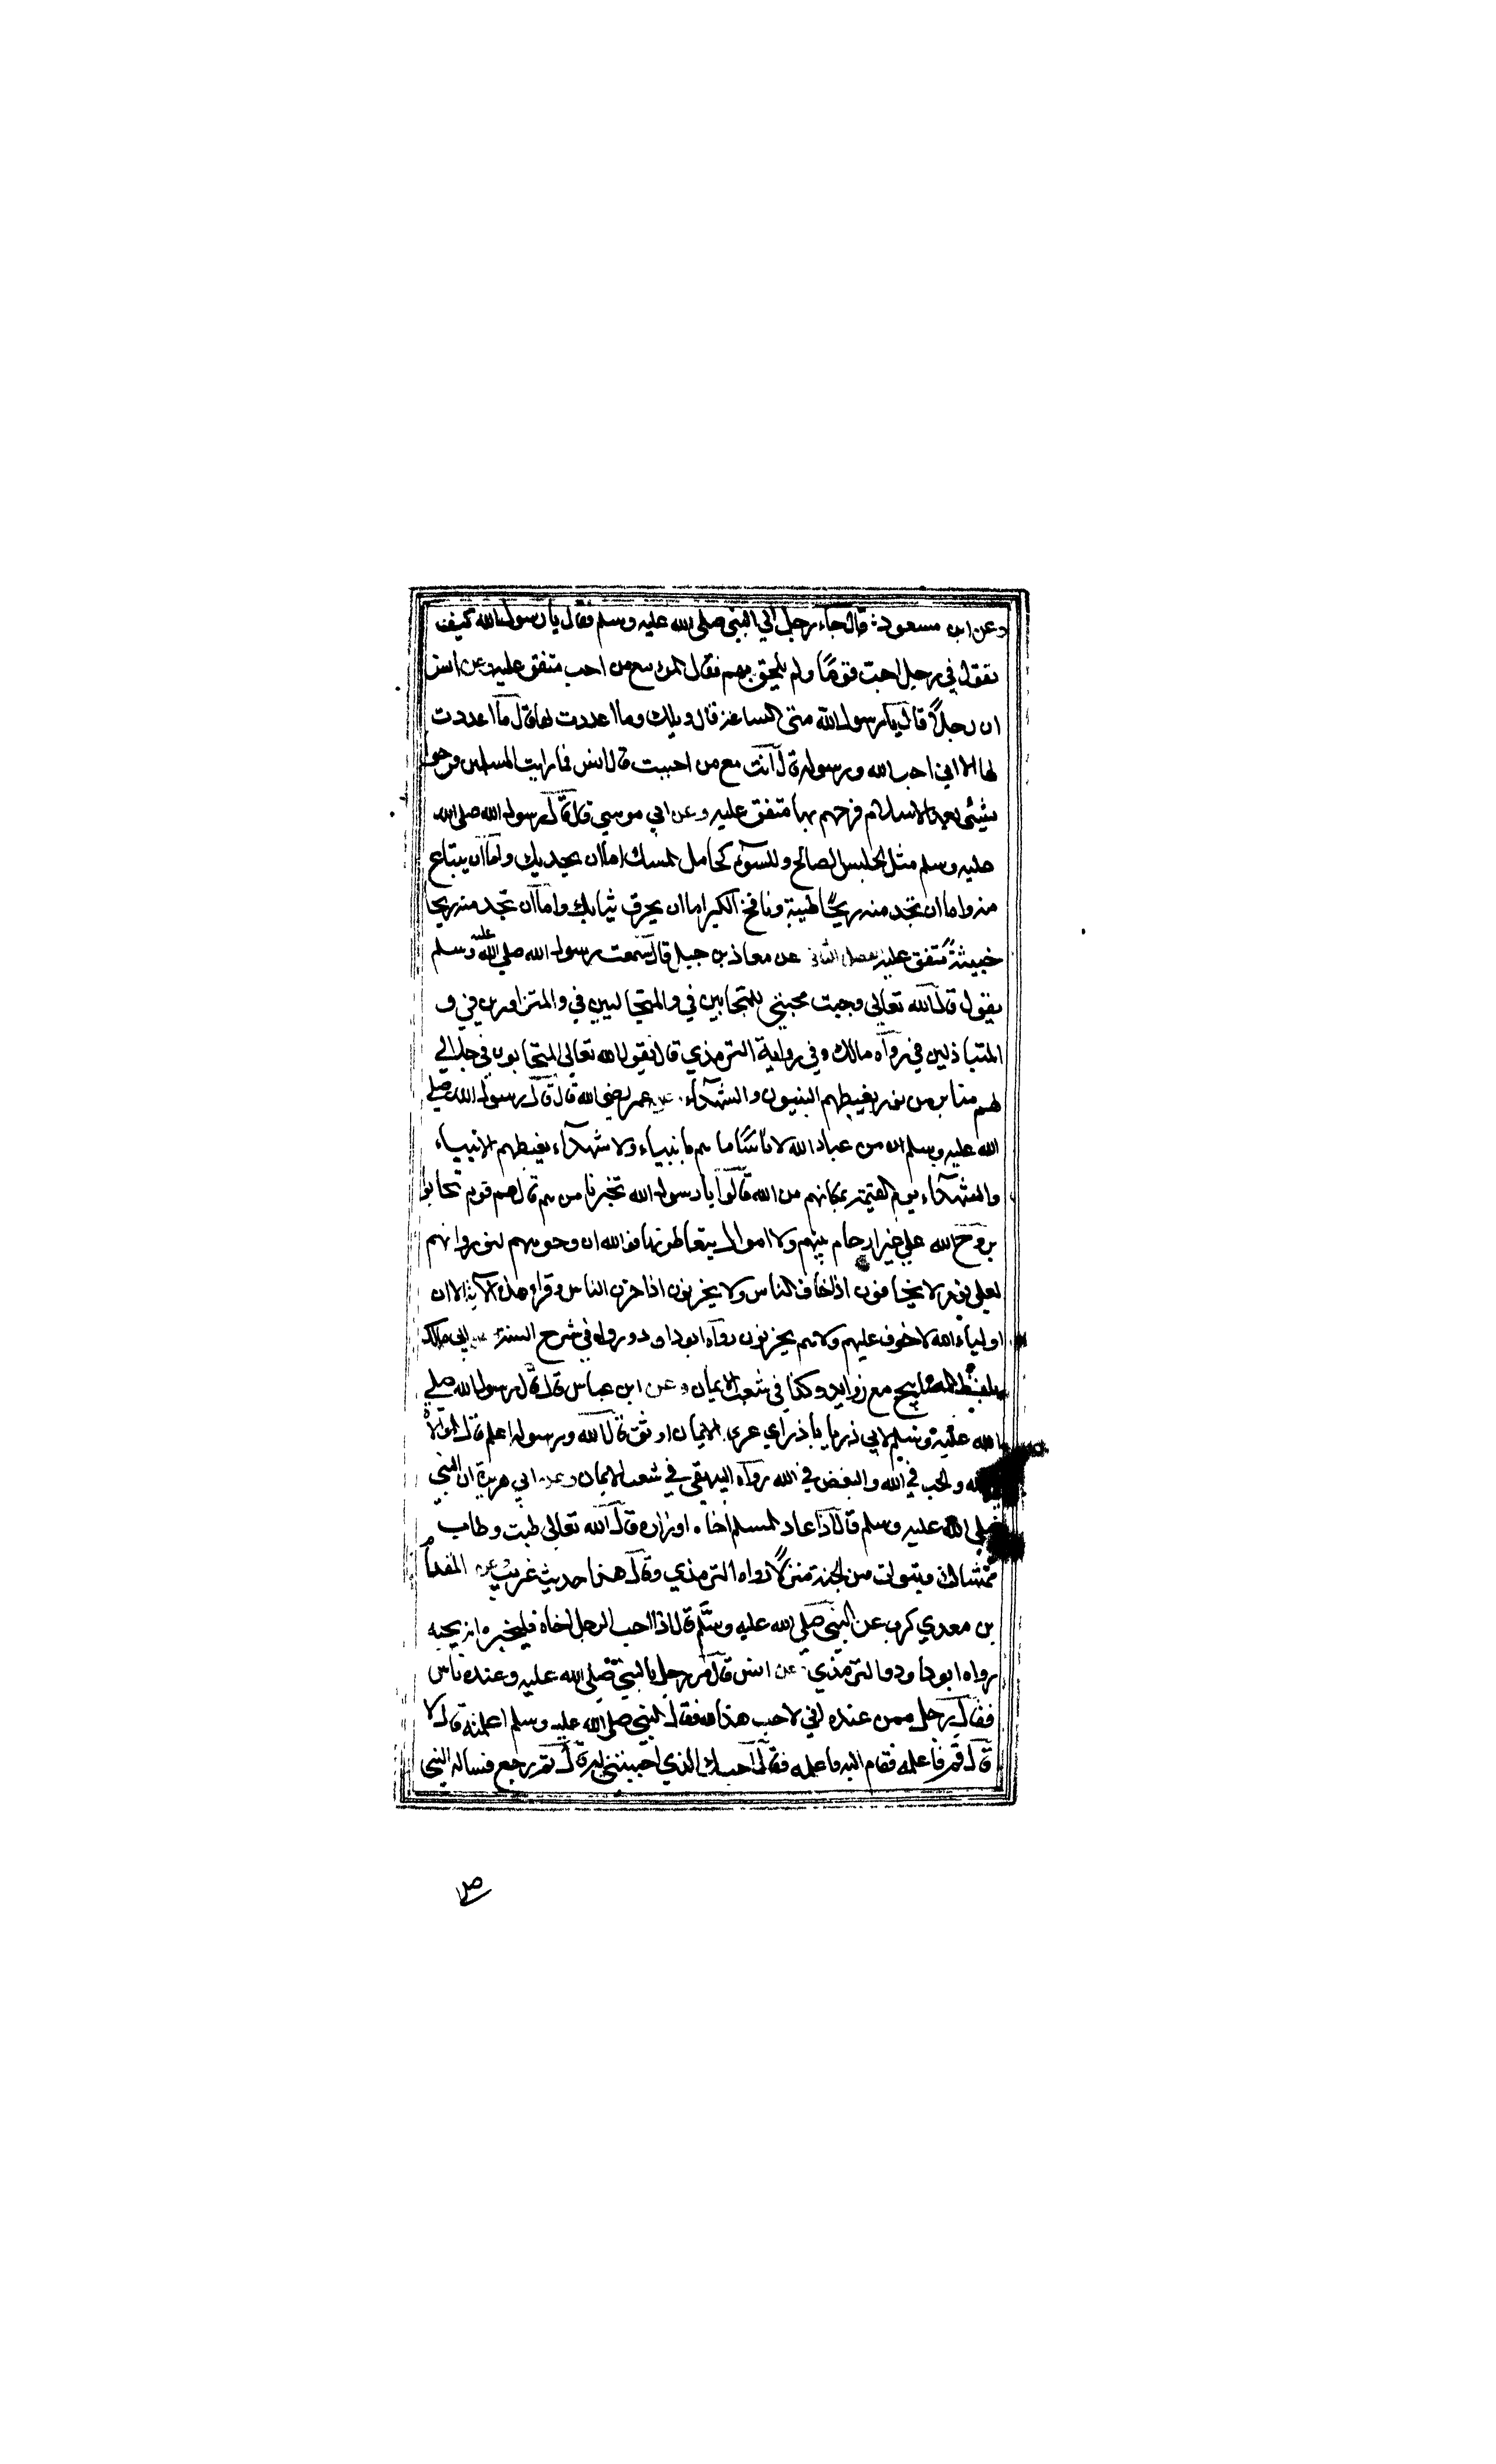 وعن ابن مسعود قال جاء رجل الي النبي صلى الله عليه وسلم فقال يا رسول الله كيف
تقول في رجل احب قوما ولم يلحق بهم فقال المرء مع من احب متفق عليه وعن انس
ان رجلا قال يا رسول الله متى الساعة قال ويلك وما اعددت لها قال ما اعددت
لها الا اني احب الله ورسوله قال انت مع من احببت قال انس فما رايت المسلمين فرحوا
بشيئ بعد الاسلام فرحهم بها متفق عليه وعن ابي موسي قال قال رسول الله صلى الله
عليه وسلم مثل الجليس الصالح والسوء كحامل المسك اما ان يحديك واما ان يبتاع
منه واما ان تجد منه ريحا طيبة ونافخ الكير اما ان يحرق ثيابك واما ان تجد منه ريحا
خبيثة متفق عليه الفصل الثاني عن معاذ بن جبل قال سمعت رسول الله صلي الله عليه وسلم
يقول قال الله تعالي وجبت محبتي للمتحابين في والمتجالسين في والمتزاورين في و
المتباذلين في رواه مالك وفي رواية الترمذي قال يقول الله تعالي المتحابون في جلالي
لهم منابر من نور يغبطهم النبيون والشهداء عن عمر رضي الله قال قال رسول الله صلي
الله عليه وسلم ان من عباد الله لاناسا ما هم بانبياء ولا شهداء يغبطهم الانبياء
والشهداء يوم القيمة بمكانهم من الله قالوا يا رسول الله تخبرنا من هم قال هم قوم تحابوا
بروح الله علي غير ارحام بينهم ولا اموال يتعاطونها فوالله ان وجوههم لنور وانهم
لعلي نور لا يخافون اذا خاف الناس ولا يحزنون اذا حزن الناس وقرا هذه الآية الا ان
اولياء الله لا خوف عليهم ولا هم يحزنون رواه ابو داود ورواه في شرح السنة عن ابي مالك
بلفظ المصابيح مع زوايد وكذا في شعب الايمان وعن ابن عباس قال قال رسول الله صلي
الله عليه وسلم لابي ذر يا با ذر اي عري الايمان اوثق قال الله ورسوله اعلم قال الموالاة
والحب في الله والبغض في الله رواه البيهقي في شعب الايمان وعن ابي هريرة ان النبي
صلي الله عليه وسلم قال اذا عاد المسلم اخاه او زاره قال الله تعالي طبت وطاب
ممشاك وتبوات من الجنة منزلا رواه الترمذي وقال هذا حديث غريب وعن المقدام
بن معدي كرب عن النبي صلي الله عليه وسلم قال اذا احب الرجل اخاه فليخبره انه يحبه
رواه ابو داود والترمذي عن انس قال مر رجل بالنبي صلي الله عليه وعنده ناس
فقال رجل ممن عنده اني لاحب هذا لله فقال النبي صلي الله عليه وسلم اعلمته قال لا
قال قم فاعلمه فقام اليه فاعلمه فقال احبك الذي احببتني له قال ثم رجع فساله النبي
صل